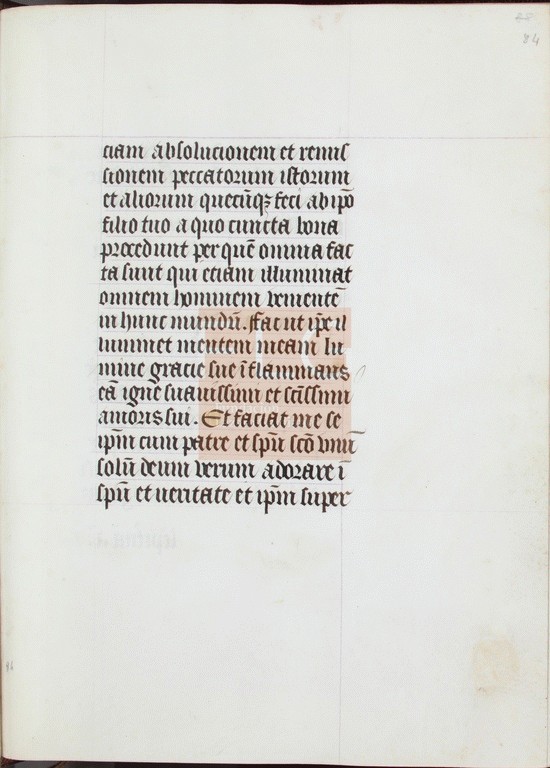 28
84
ciam absolucionem et remis
sionem peccatorum istorum
et aliorum quecūqꝫ feci ab ip̄o
filio tuo a quo cuncta bona
procedunt per quē omnia fac
ta sunt qui eciam illuminat
omnem hominem uenientē
in hunc mundū. ffac ut ip̄e il
luminet mentem meam lu
mine gracie sue īflammans
eā igne suauissimi et sc̄issimi
amoris sui. Et faciat me se
ip̄m cum patre et spū sc̄o vnū
solū deum uerum adorare ī
spū et ueritate et ip̄m super
96